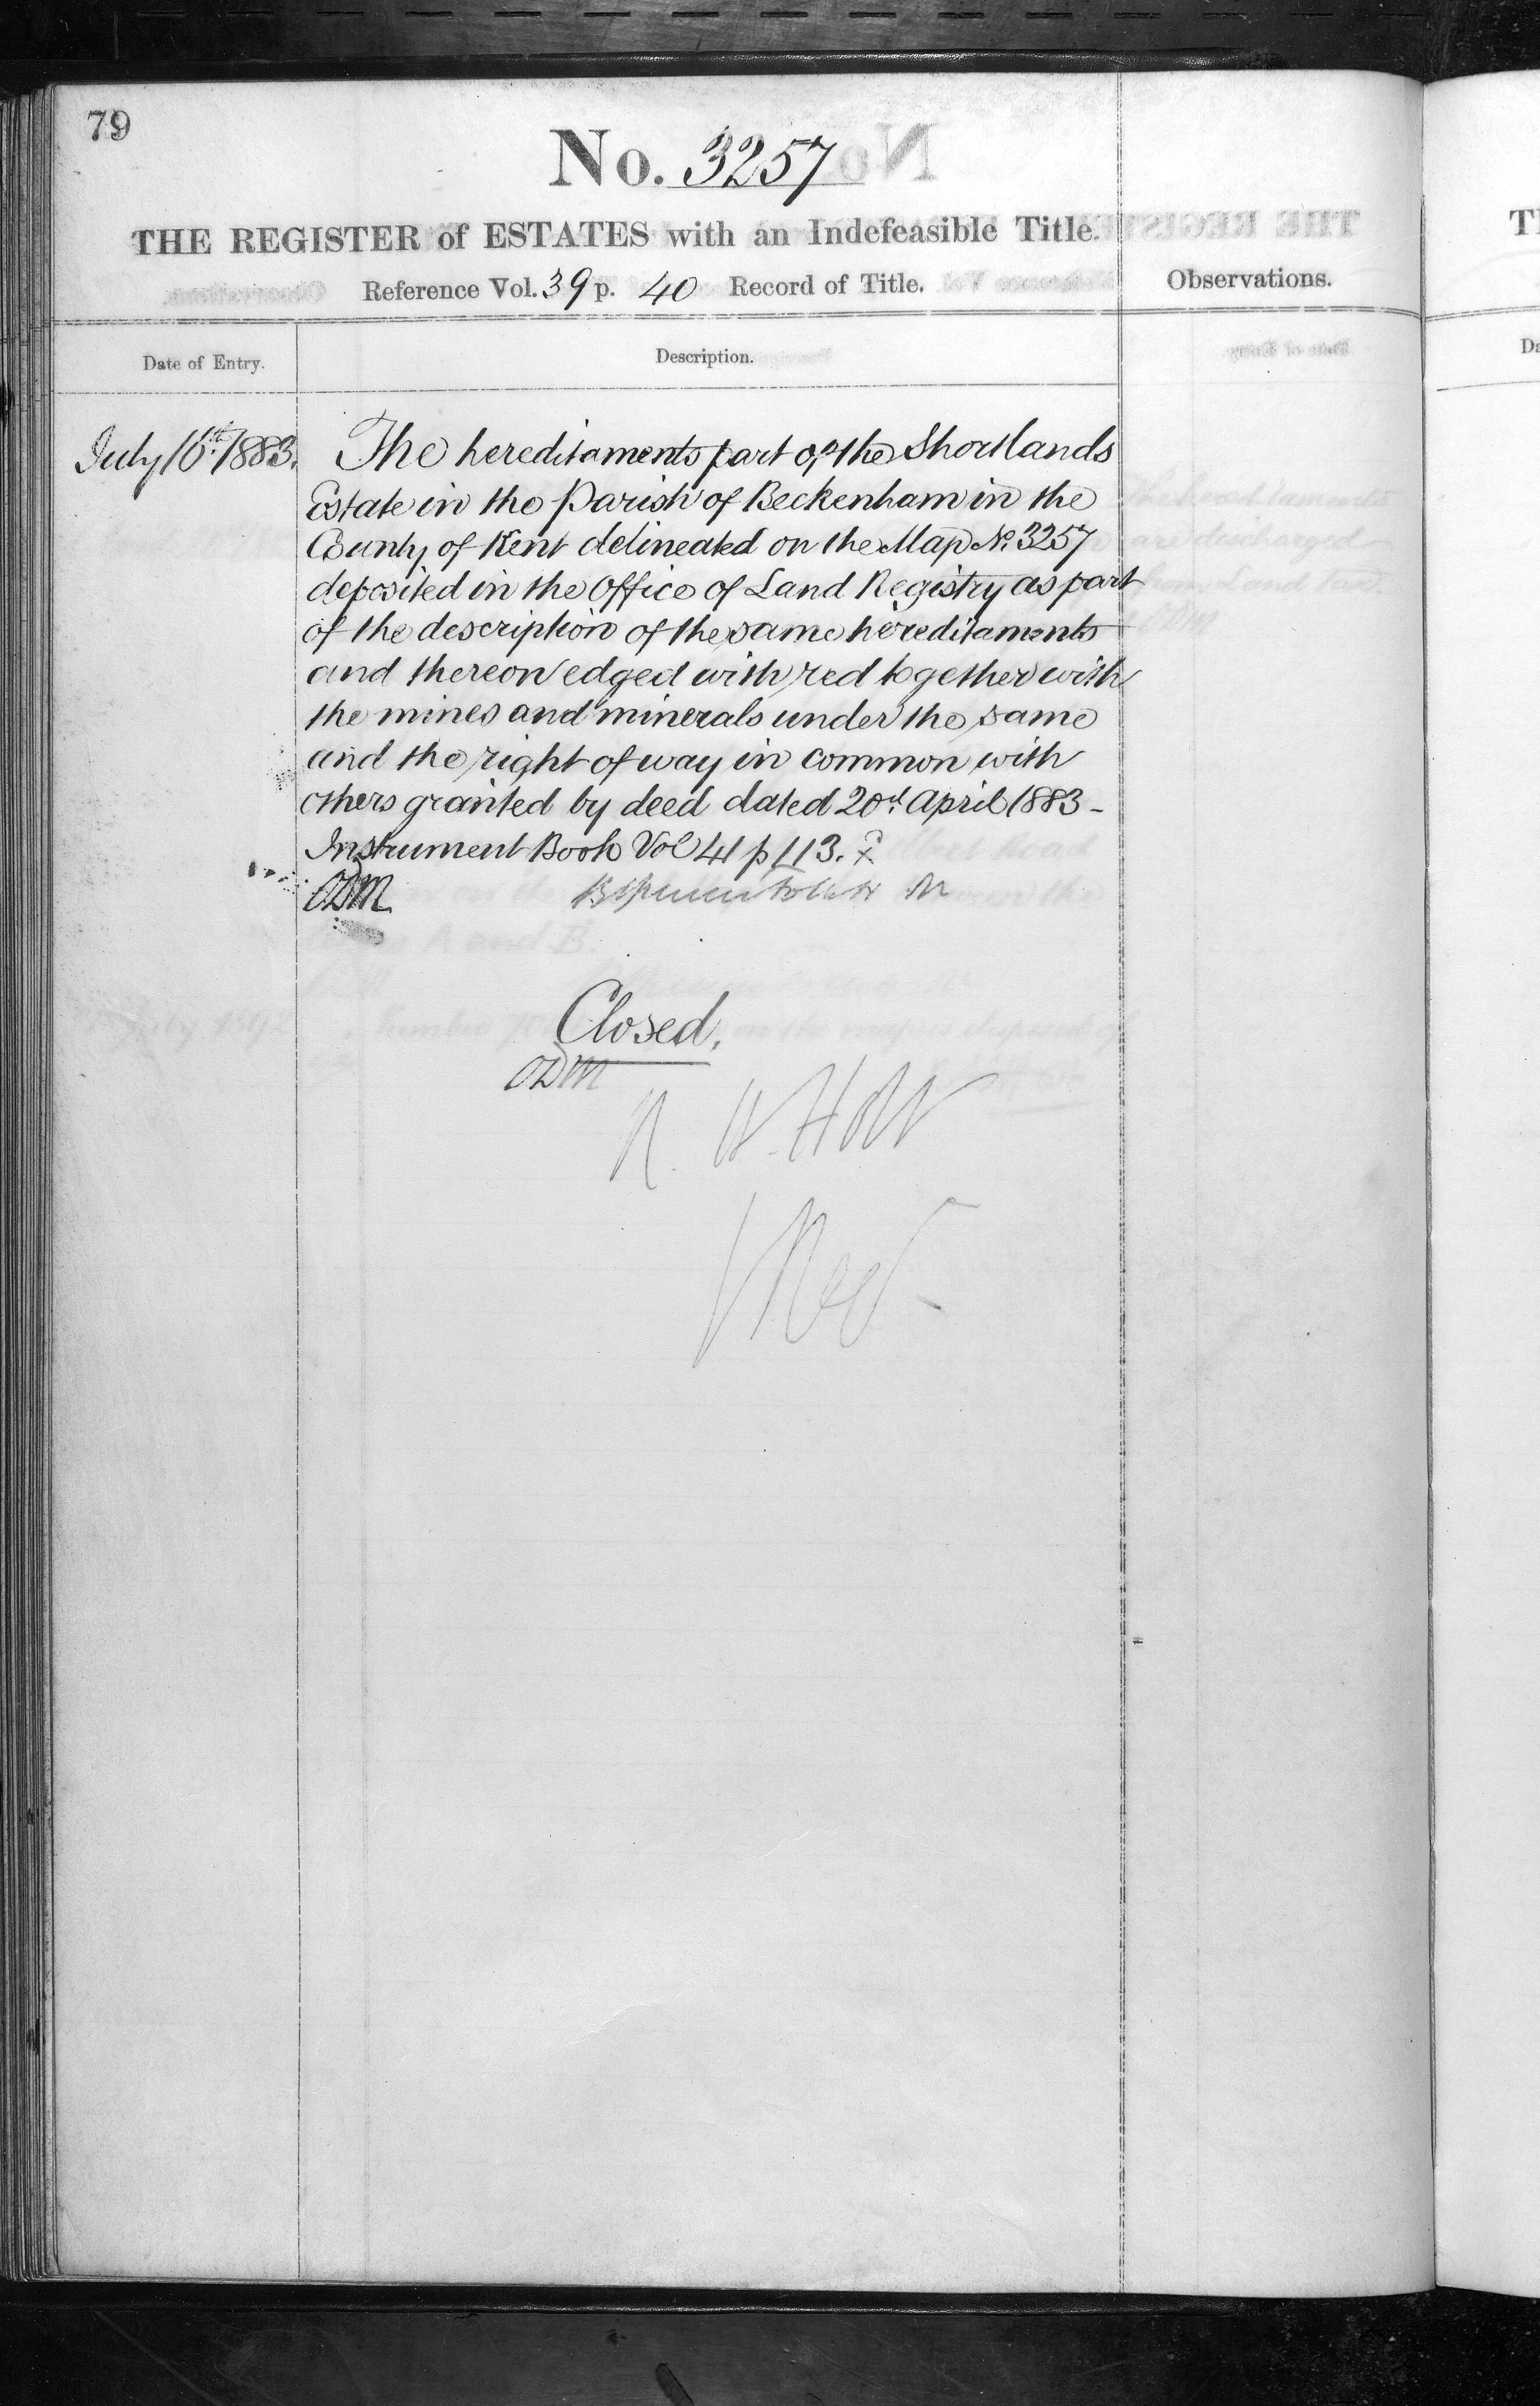 79
No. 3257
THE REGISTER of ESTATES with an Indefeasible Title.
Reference Vol. 39 p. 40 Record of Title.
Observations.
Date of Entry.
Description.
July 16th 1883.
The hereditaments part of the Shortlands
Estate in the Parish of Beckenham in the
County of Kent delineated on the Map No. 3257
deposited in the Office of Land Registry as part
of the description of the same hereditaments
and thereon edged with red together with
the mines and minerals under the same
and the right of way in common with
others granted by deed dated 20th April 1883 -
Instrument Book Vol 41 p 113.
ODM
Closed.
ODM